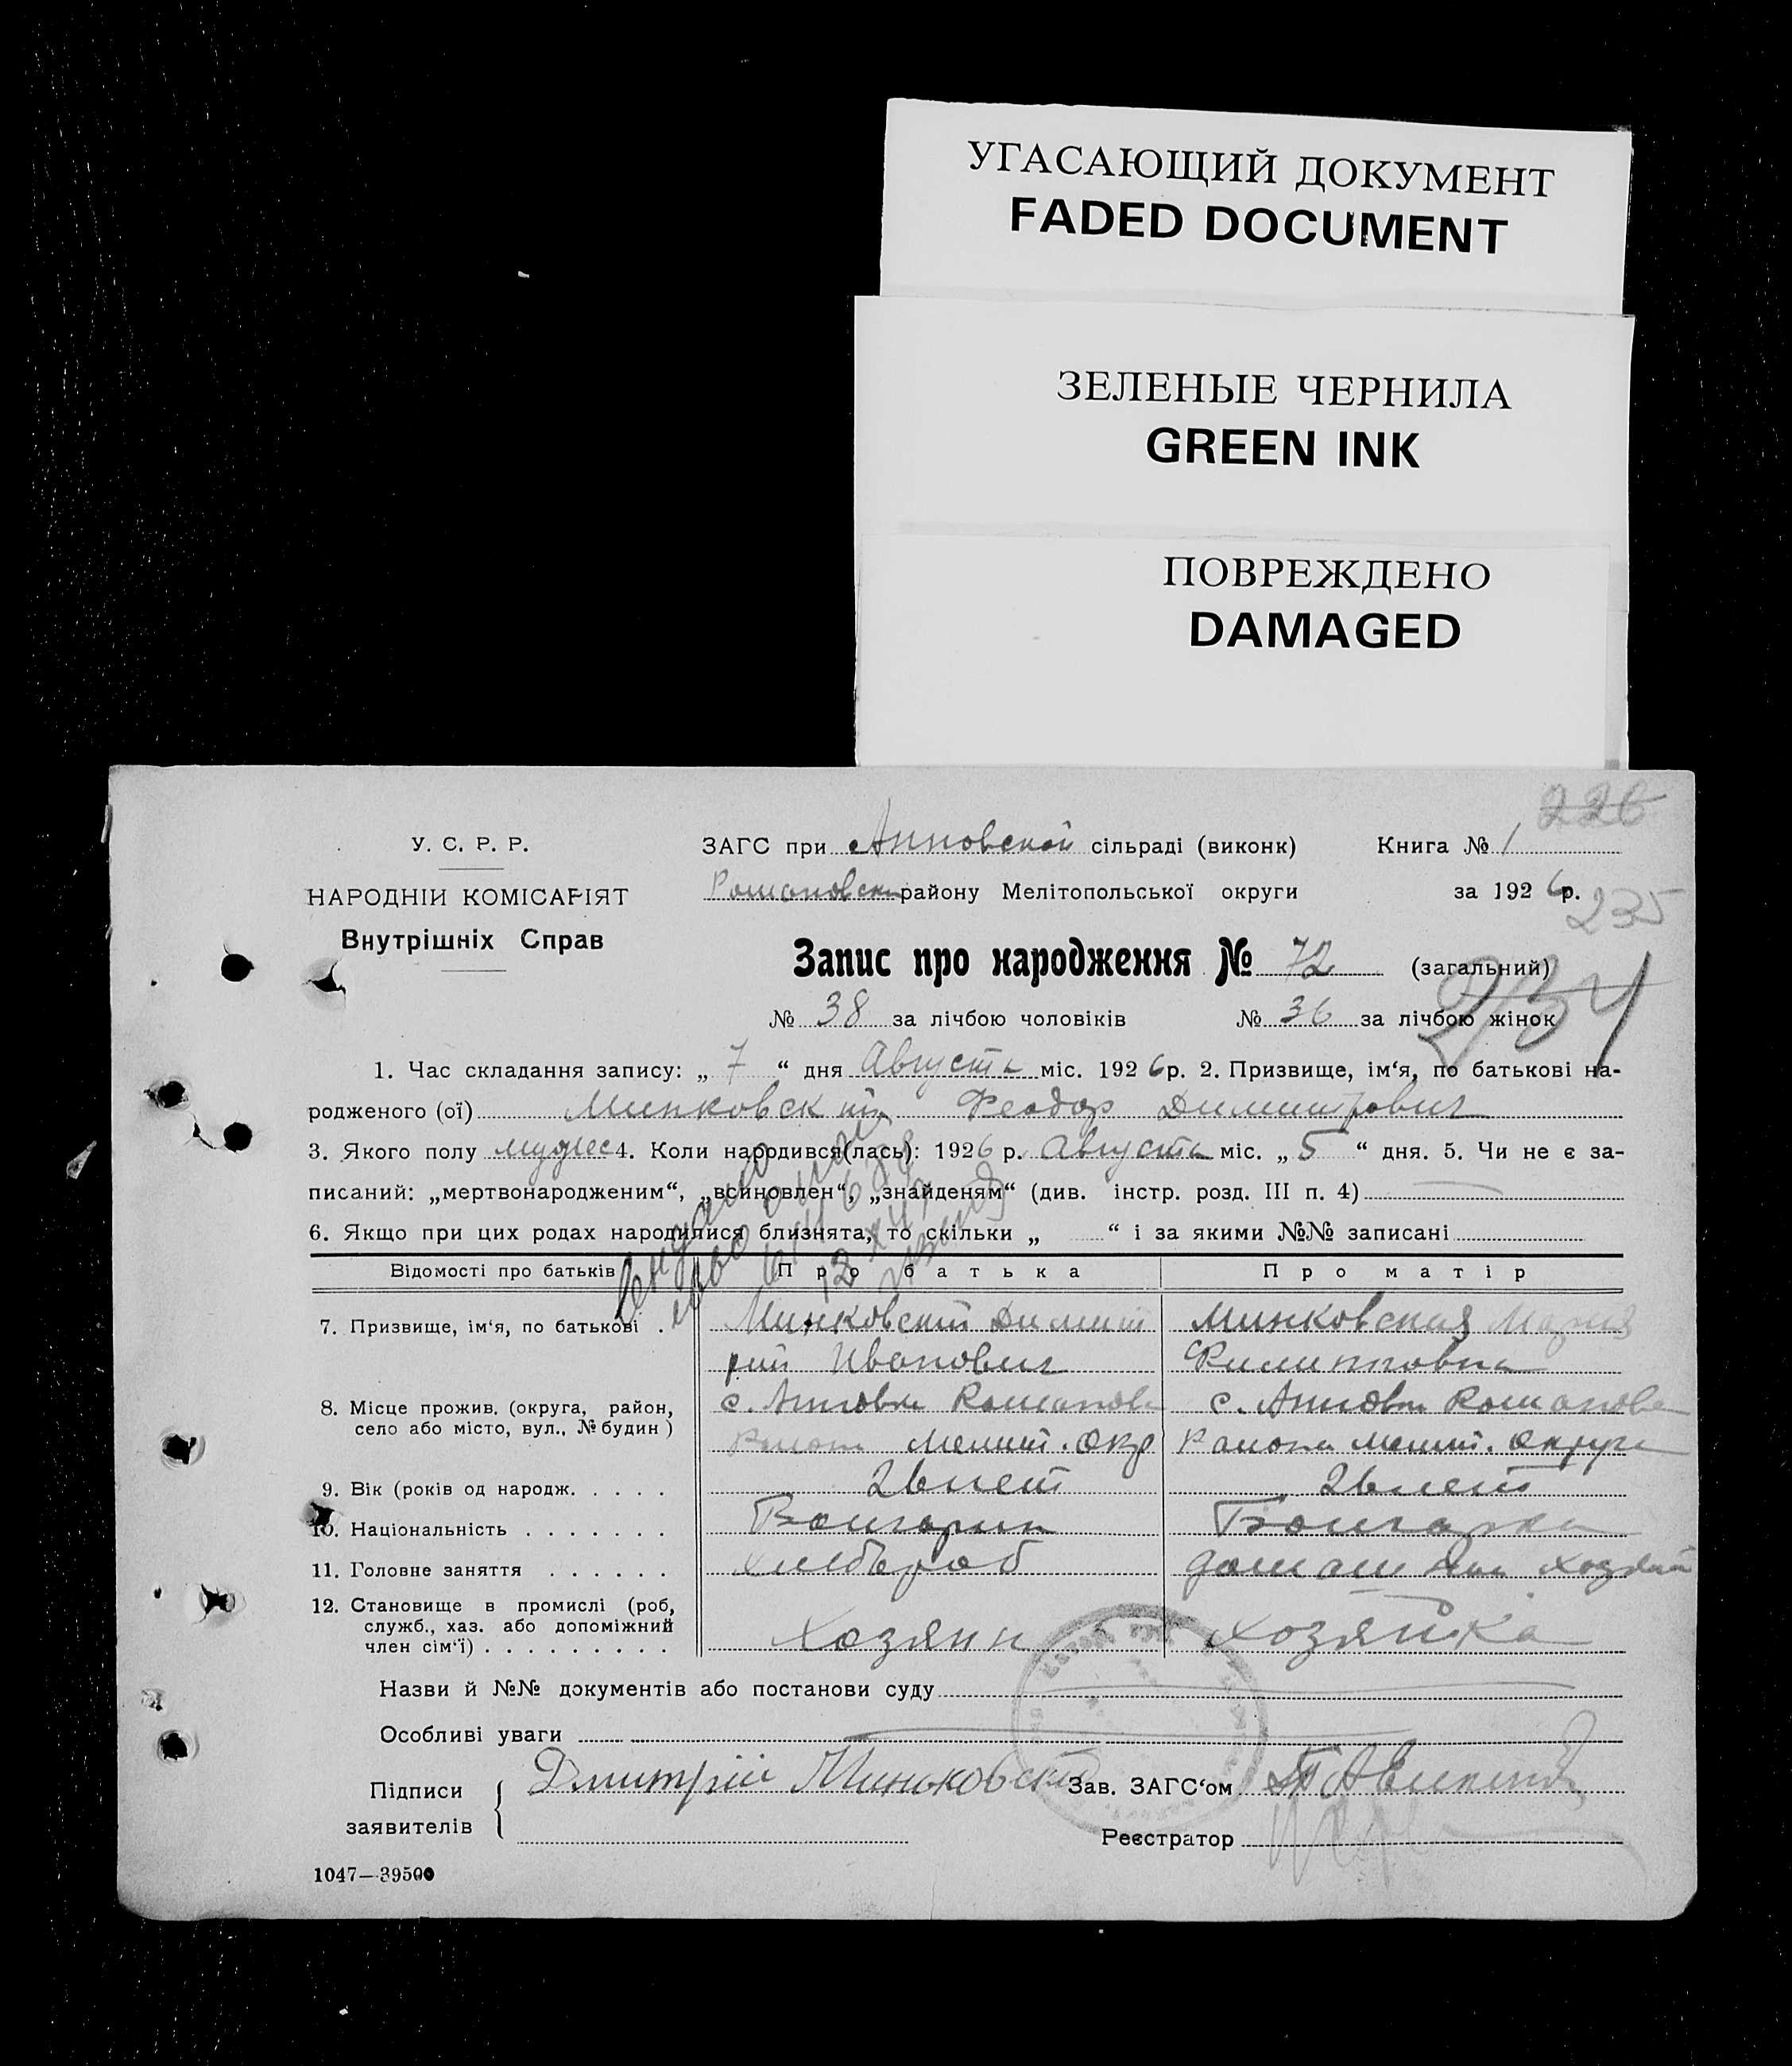 УГАСАЮЩИЙ ДОКУМЕНТ
FADED DOCUMENT
ЗЕЛЕНЫЕ ЧЕРНИЛА
GREEN INK
ПОВРЕЖДЕНО
DAMAGED
226
У. С. Р. Р.
ЗАГС при Анновской сільраді (виконк) Книга № 1
НАРОДНІИ КОМІСАРІЯТ
Романовск району Мелітопольської округи за 1926 р.
235
Внутрішніх Справ
Запис про народження № 72 (загальний)
234
№ 38 за лічбою чоловіків № 36 за лічбою жінок
1. Час складання запису: „ 7 “ дня Августа міс. 1926 р. 2. Призвище, ім‘я, по батькові на-
родженого (ої) Минковский Феодор Димитрович
3. Якого полу мужес 4. Коли народився(лась): 1926 р. Августа міс. „ 5 “ дня. 5. Чи не є за-
писаний: „мертвонародженим“, „всиновлен“, „знайденям“ (див. інстр. розд. III п. 4)
6. Якщо при цих родах народилися близнята, то скільки „ “ і за якими №№ записані
Відомості про батьків Про батька Про матір
7. Призвище, ім‘я, по батькові . Минковский Димит Минковская Мария
рий Иванович Филипповна
8. Місце прожив. (округа, район, с. Анновка Романовс с. Анновка Романовс
село або місто, вул., № будин ) Района Мелит. Окр Района Мелит. Округа
9. Вік (років од народж. . . . . 26 лет 26 лет
10. Національність . . . . . . . Болгарин Болгарка
11. Головне заняття . . . . . . Хлебороб домашняя хозяй
12. Становище в промислі (роб,
служб., хаз. або допоміжний
член сім‘ї) . . . . . . . . . Хозяин хозяйка
Назви й №№ документів або постанови суду
Особливі уваги
Підписи Дмитрій Миньковский Зав. ЗАГС‘ом
заявителів
Реєстратор
1047—39500